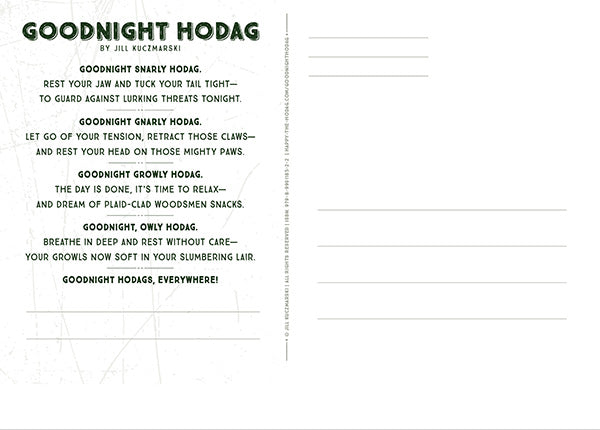 GOODNIGHT HODAG
BY JILL KUCZMARSKI
GOODNIGHT SNARLY HODAG.
REST YOUR JAW AND TUCK YOUR TAIL TIGHT—
TO GUARD AGAINST LURKING THREATS TONIGHT.
GOODNIGHT GNARLY HODAG.
LET GO OF YOUR TENSION, RETRACT THOSE CLAWS—
AND REST YOUR HEAD ON THOSE MIGHTY PAWS.
GOODNIGHT GROWLY HODAG.
THE DAY IS DONE, IT'S TIME TO RELAX—
AND DREAM OF PLAID-CLAD WOODSMEN SNACKS.
GOODNIGHT, OWLY HODAG.
BREATHE IN DEEP AND REST WITHOUT CARE—
YOUR GROWLS NOW SOFT IN YOUR SLUMBERING LAIR.
GOODNIGHT HODAGS, EVERYWHERE!
© JILL KUCZMARSKI | ALL RIGHTS RESERVED | ISBN | HAPPY-THE-HODAG.COM/GOODNIGHTHODAG